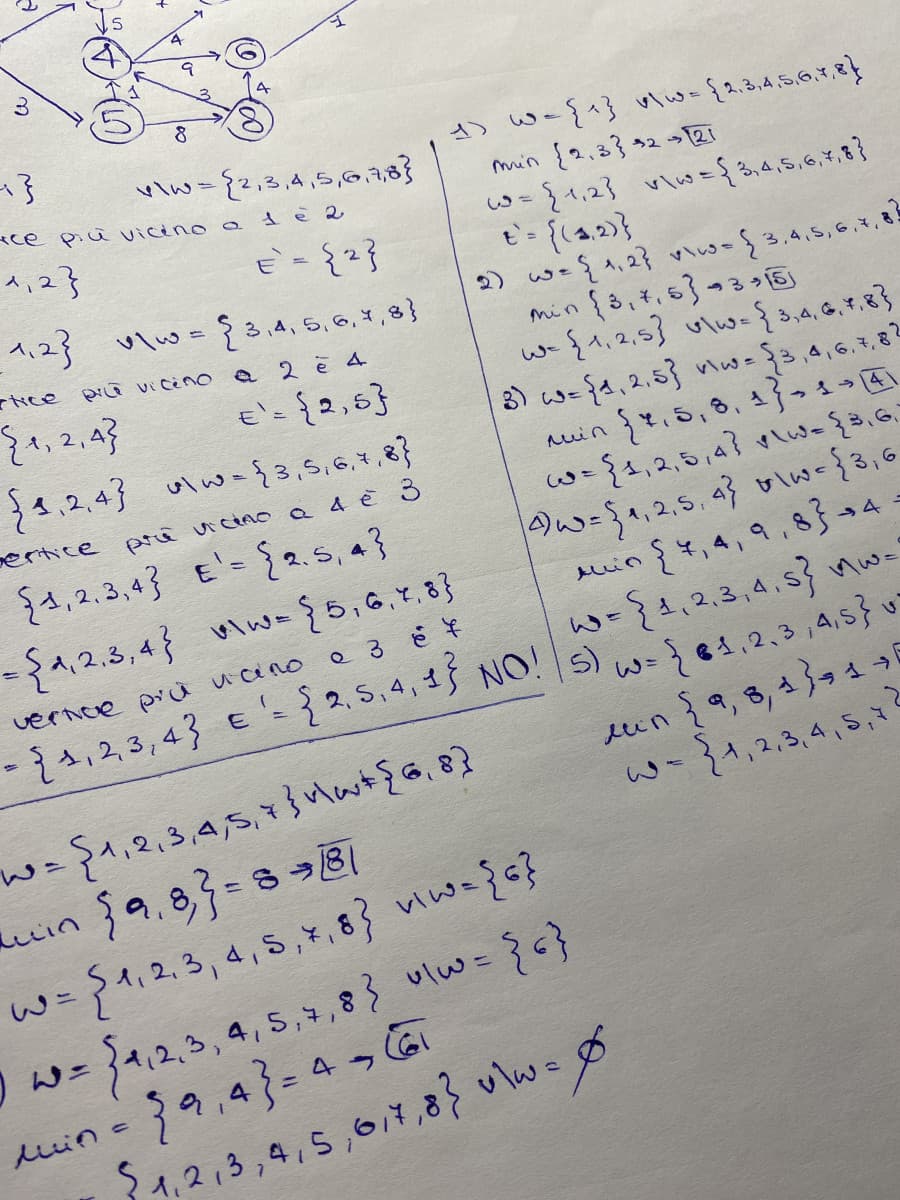 2
5
4
4
6
1
9
3
1
3
4
5
8
8
1}
V\W={2,3,4,5,6,7,8}
più vicino a 1 è 2
1,2}
E'={2}
1,2} V\W={3,4,5,6,7,8}
più vicino a 2 è 4
{1,2,4}
E'={2,5}
{1,2,4} V\W={3,5,6,7,8}
vertice più vicino a 4 è 3
{1,2,3,4} E'={2.5,4}
={1,2,3,4} V\W={5,6,7,8}
vertice più vicino a 3 è 7
={1,2,3,4} E'={2,5,4,1} NO!
1) W={1} V\W={2,3,4,5,6,7,8}
min {2,3}→2→2
W={1,2} V\W={3,4,5,6,7,8}
E'={(1,2)}
2) W={1,2} V\W={3,4,5,6,7,8}
min {3,7,5}→3→5
W={1,2,5} V\W={3,4,6,7,8}
3) W={1,2,5} V\W={3,4,6,7,8}
min {7,5,8,1}→1→4
W={1,2,5,4} V\W={3,6,
4) W={1,2,5,4} V\W={3,6
min {7,4,9,8}→4
W={1,2,3,4,5} V\W=
5) W={1,2,3,4,5} V
min {9,8,1}→1→
W={1,2,3,4,5,7}
W={1,2,3,4,5,7} V\W={6,8}
min {9,8,}=8→8
W={1,2,3,4,5,7,8} V\W={6}
) W={1,2,3,4,5,7,8} V\W={6}
min={9,4}=4→6
={1,2,3,4,5,6,7,8} V\W=∅